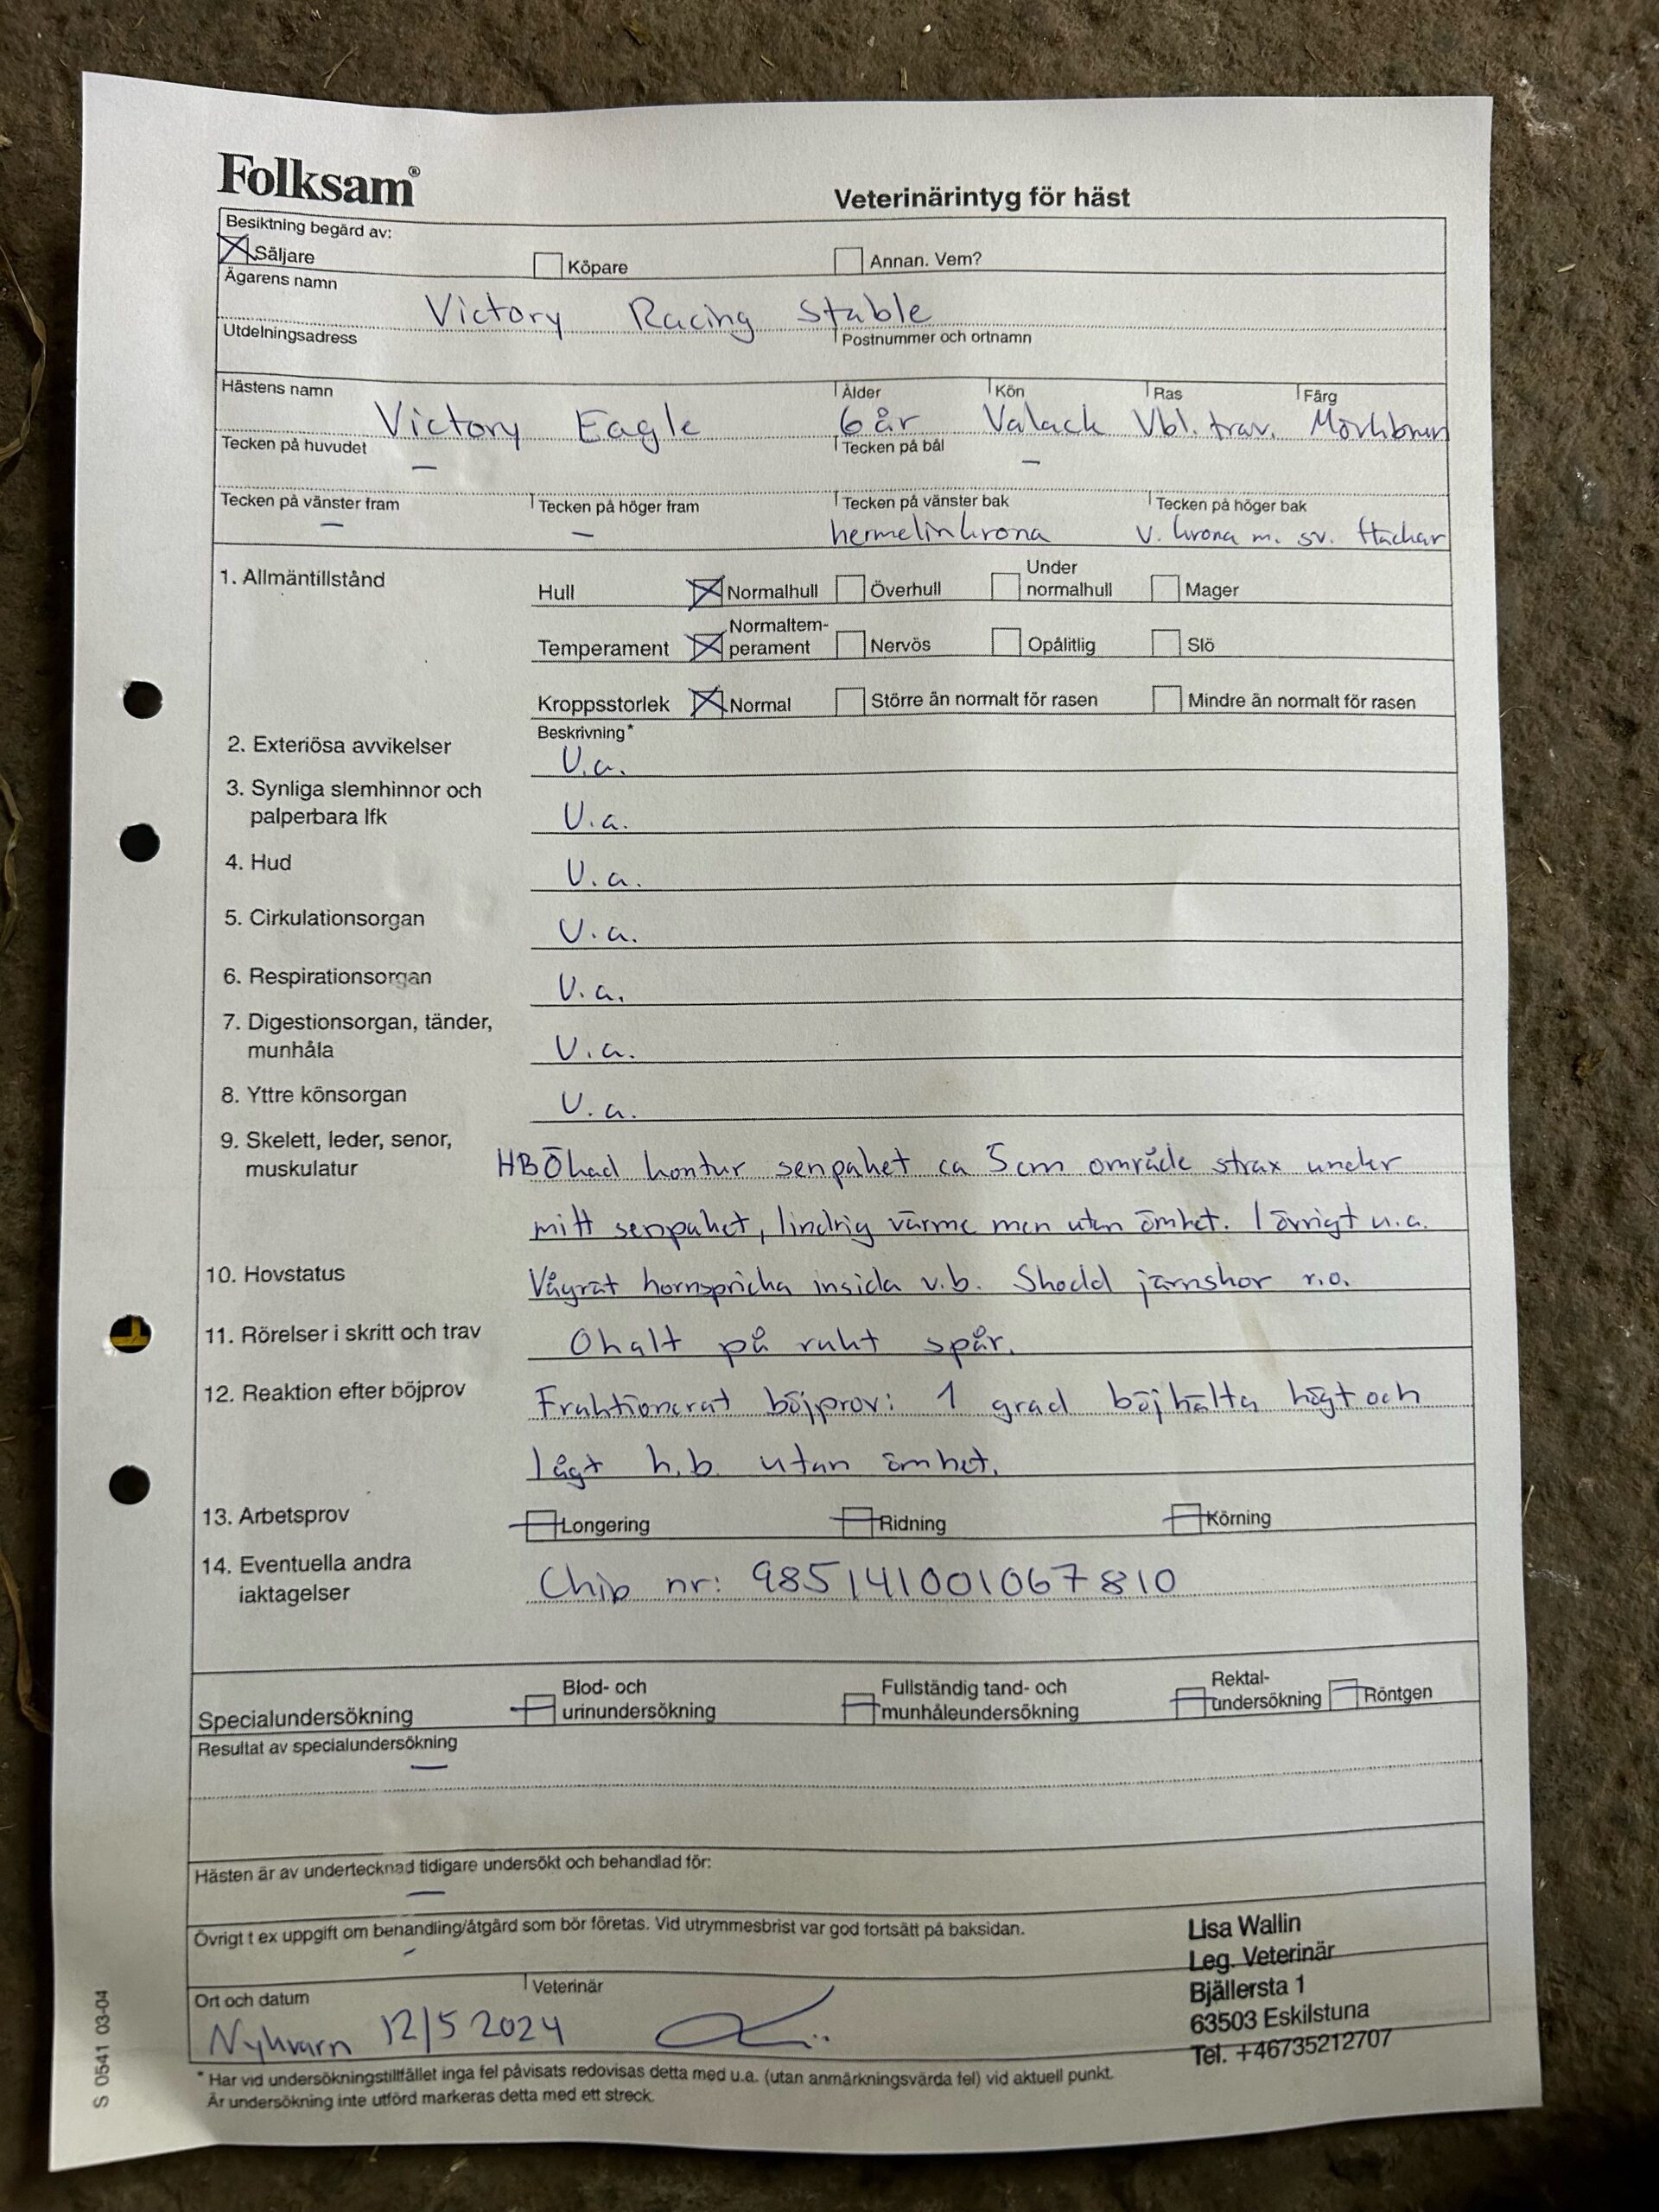 Folksam®
Veterinärintyg för häst
Besiktning begärd av:
Säljare Köpare Annan. Vem?
Ägarens namn
Victory Racing Stable
Utdelningsadress Postnummer och ortnamn
Hästens namn Ålder Kön Ras Färg
Victory Eagle 6 år Valack Vbl. trav. Mörkbrun
Tecken på huvudet Tecken på bål
– –
Tecken på vänster fram Tecken på höger fram Tecken på vänster bak Tecken på höger bak
– – hermelinkrona v. krona m. sv. fläckar
1. Allmäntillstånd
Hull Normalhull Överhull Under normalhull Mager
Temperament Normaltem-perament Nervös Opålitlig Slö
Kroppsstorlek Normal Större än normalt för rasen Mindre än normalt för rasen
Beskrivning*
2. Exteriösa avvikelser U.a.
3. Synliga slemhinnor och
palperbara lfk U.a.
4. Hud U.a.
5. Cirkulationsorgan U.a.
6. Respirationsorgan U.a.
7. Digestionsorgan, tänder,
munhåla U.a.
8. Yttre könsorgan U.a.
9. Skelett, leder, senor,
muskulatur HB Ökad kontur senpaket ca 5 cm område strax under
mitt senpaket, lindrig värme men utan ömhet. I övrigt u.a.
10. Hovstatus Vågrät hornspricka insida v.b. Skodd järnskor r.o.
11. Rörelser i skritt och trav Ohalt på rakt spår.
12. Reaktion efter böjprov Fraktionerat böjprov: 1 grad böjhälta högt och
lågt h.b. utan ömhet.
13. Arbetsprov Longering Ridning Körning
14. Eventuella andra
iaktagelser Chip nr: 985141001067810
Specialundersökning Blod- och urinundersökning Fullständig tand- och munhåleundersökning Rektal-undersökning Röntgen
Resultat av specialundersökning
–
Hästen är av undertecknad tidigare undersökt och behandlad för:
–
Övrigt t ex uppgift om behandling/åtgärd som bör företas. Vid utrymmesbrist var god fortsätt på baksidan.
–
Lisa Wallin
Leg. Veterinär
Bjällersta 1
63503 Eskilstuna
Tel. +46735212707
Ort och datum Veterinär
Nykvarn 12/5 2024
* Har vid undersökningstillfället inga fel påvisats redovisas detta med u.a. (utan anmärkningsvärda fel) vid aktuell punkt.
Är undersökning inte utförd markeras detta med ett streck.
S 0541 03-04